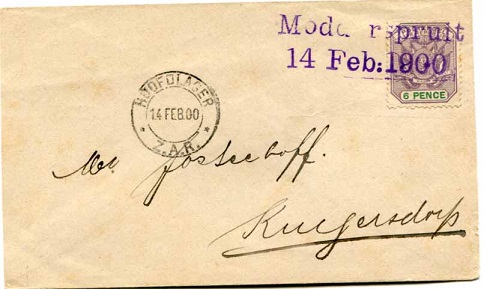 Modd rspruit
14 Feb: 1900
6 PENCE
HOOFDLAGER
14 FEB.00
Z.A.R.
Krugersdorp